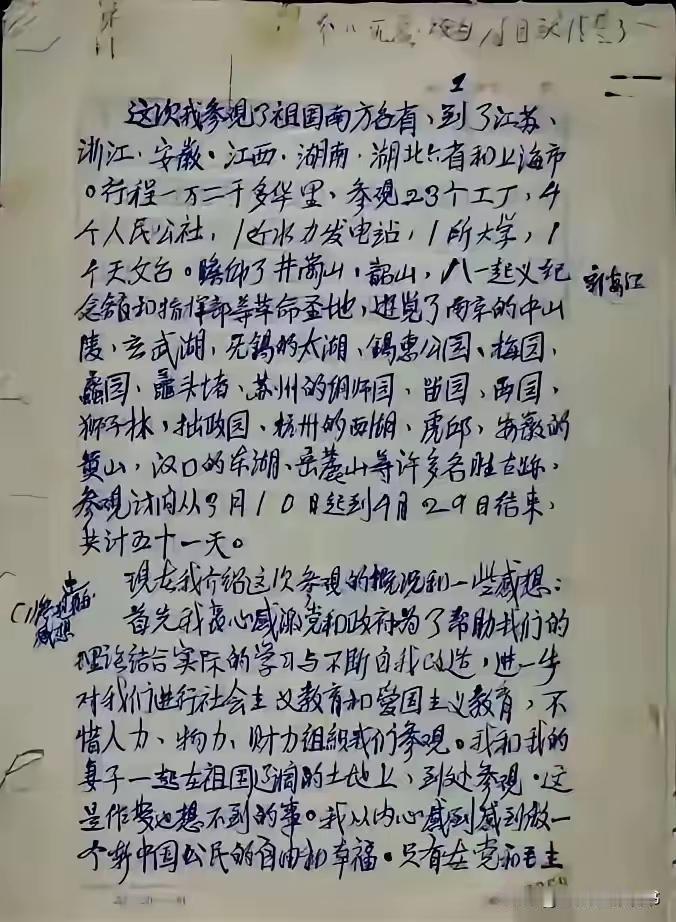 1
这次我参观了祖国南方各省、到了江苏、
浙江·安徽·江西·湖南·湖北六省和上海市
。行程一万二千多华里,参观23个工厂,4
个人民公社,1处水力发电站,1所大学,1
个天文台。瞻仰了井岗山,韶山,八一起义纪
新安江
念馆和指挥部等革命圣地,遊览了南京的中山
陵,玄武湖,无锡的太湖、锡惠公园、梅园,
蠡园、鼋头堵、苏州的网师园、留园,西园,
狮子林,拙政园、杭州的西湖、虎邱,安徽的
黄山,汉口的东湖、岳麓山等许多名胜古跡,
参观访问从3月10日起到4月29日结束,
共计五十一天。
现在我介绍这次参观的概况和一些感想:
(1)
感想
首先我衷心感谢党和政府为了帮助我们的
理论结合实际的学习与不断自我改造,进一步
对我们进行社会主义教育和爱国主义教育,不
惜人力、物力、财力组织我们参观。我和我的
妻子一起在祖国辽阔的土地上、到处参观·这
是作梦也想不到的事。我从内心感到感到做一
个新中国公民的自由和幸福。只有在党和毛主